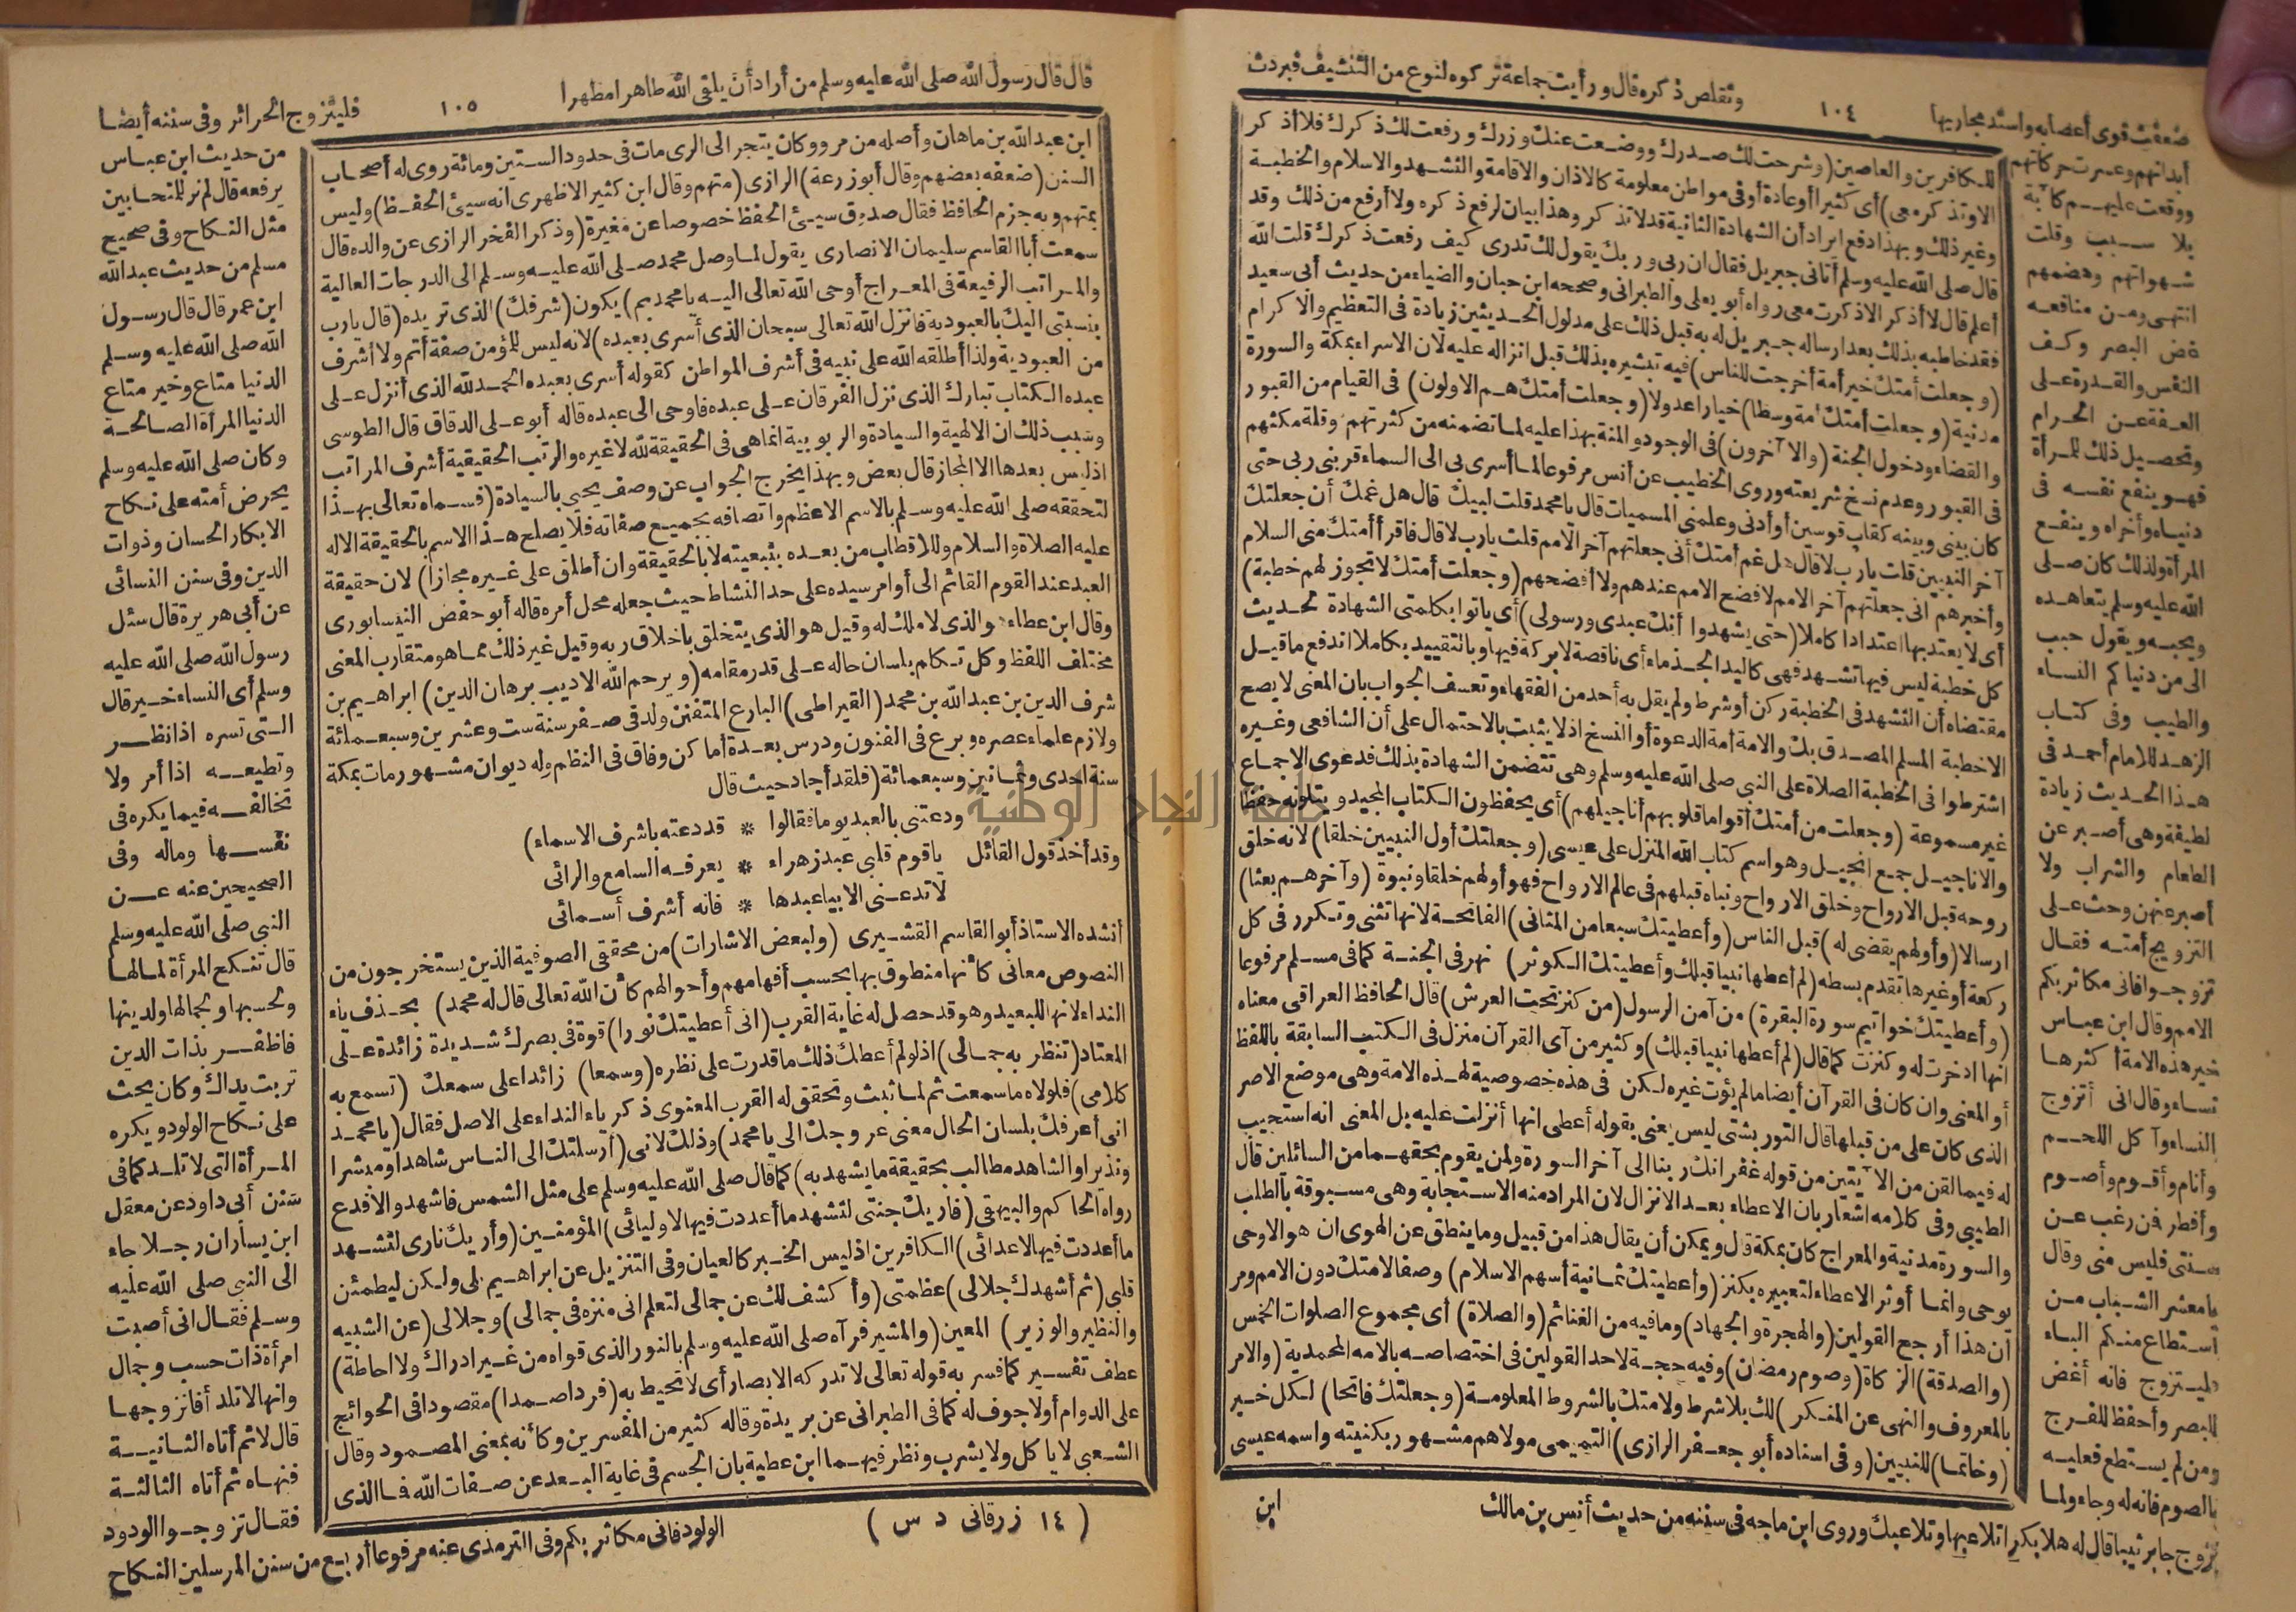 وتقلص ذكره قال ورأيت جماعة تركوه لنوع من التنشيف فبردت
١٠٤
ضعفت قوى أعصابه واستد مجاريها
للكافرين والعاصين (وشرحت لك صدرك ووضعت عنك وزرك ورفعت لك ذكرك فلا أذكر
الا وتذكر معي) أي كثيرا أو عادة أو في مواطن معلومة كالاذان والاقامة والتشهد والاسلام والخطبة
وغير ذلك وبهذا دفع ايراد أن الشهادة الثانية قد لا تذكر وهذا بيان لرفع ذكره ولا أرفع من ذلك وقد
قال صلى الله عليه وسلم أتاني جبريل فقال ان ربي وربك يقول لك تدري كيف رفعت ذكرك قلت الله
أعلم قال لا أذكر الا ذكرت معي رواه أبو يعلى والطبراني وصححه ابن حبان والضياء من حديث أبي سعيد
فقد خاطبه بذلك بعد ارساله جبريل له به قبل ذلك على مدلول الحديثين زيادة في التعظيم والاكرام
(وجعلت أمتك خير أمة أخرجت للناس) فيه تبشيره بذلك قبل انزاله عليه لان الاسراء بمكة والسورة
مدنية (وجعلت أمتك أمة وسطا) خيارا عدولا (وجعلت أمتك هم الاولون) في القيام من القبور
والقضاء ودخول الجنة (والآخرون) في الوجود والمنة بهذا عليه لما تضمنه من كثرتهم وقلة مكثهم
في القبور وعدم نسخ شريعته وروى الخطيب عن أنس مرفوعا لما أسري بي الى السماء قربني ربي حتى
كان بيني وبينه كقاب قوسين أو أدنى وعلمني المسميات قال يا محمد قلت لبيك قال هل غمك أن جعلتك
آخر النبيين قلت يا رب لا قال هل غم أمتك أني جعلتهم آخر الامم قلت يا رب لا قال فاقرأ أمتك مني السلام
وأخبرهم اني جعلتهم آخر الامم لافضح الامم عندهم ولا أفضحهم (وجعلت أمتك لا تجوز لهم خطبة)
أي لا يعتد بها اعتدادا كاملا (حتى يشهدوا أنك عبدي ورسولي) أي يأتوا بكلمتي الشهادة لحديث
كل خطبة ليس فيها تشهد فهي كاليد الجذماء أي ناقصة لا بركة فيها وبالتقييد بكاملا اندفع ما قيل
مقتضاه أن التشهد في الخطبة ركن أو شرط ولم يقل به أحد من الفقهاء وتعسف الجواب بان المعنى لا يصح
الا خطبة المسلم المصدق بك والامة أمة الدعوة أو النسخ اذ لا يثبت بالاحتمال على أن الشافعي وغيره
اشترطوا في الخطبة الصلاة على النبي صلى الله عليه وسلم وهي تتضمن الشهادة بذلك فدعوى الاجماع
غير مسموعة (وجعلت من أمتك أقواما قلوبهم أناجيلهم) أي يحفظون الكتاب المجيد ويتلونه حفظا
والاناجيل جمع انجيل وهو اسم كتاب الله المنزل على عيسى (وجعلتك أول النبيين خلقا) لانه خلق
روحه قبل الارواح وخلق الارواح ونباه قبلهم في عالم الارواح فهو أولهم خلقا ونبوة (وآخرهم بعثا)
ارسالا (وأولهم يقضى له) قبل الناس (وأعطيتك سبعا من المثاني) الفاتحة لانها تثنى وتكرر في كل
ركعة أو غيرها تقدم بسطه (لم أعطها نبيا قبلك وأعطيتك الكوثر) نهر في الجنة كما في مسلم مرفوعا
(وأعطيتك خواتيم سورة البقرة) من آمن الرسول (من كنز تحت العرش) قال الحافظ العراقي معناه
انها ادخرت له وكنزت كما قال (لم أعطها نبيا قبلك) وكثير من آي القرآن منزل في الكتب السابقة باللفظ
أو المعنى وان كان في القرآن أيضا ما لم يؤت غيره لكن في هذه خصوصية لهذه الامة وهي موضع الاصر
الذي كان على من قبلها قال التوربشتي ليس يعني بقوله أعطى انها أنزلت عليه بل المعنى انه استجيب
له فيما لقن من الآيتين من قوله غفرانك ربنا الى آخر السورة ولمن يقوم بحقهما من السائلين قال
الطيبي وفي كلامه اشعار بان الاعطاء بعد الانزال لان المراد منه الاستجابة وهي مسبوقة بالطلب
والسورة مدنية والمعراج كان بمكة قال ويمكن أن يقال هذا من قبيل وما ينطق عن الهوى ان هو الا وحي
يوحى وانما أوثر الاعطاء لتعبيره بكنز (وأعطيتك ثمانية أسهم الاسلام) وصفا لامتك دون الامم ومر
أن هذا أرجح القولين (والهجرة والجهاد) وما فيه من الغنائم (والصلاة) أي مجموع الصلوات الخمس
(والصدقة) الزكاة (وصوم رمضان) وفيه حجة لاحد القولين في اختصاصه بالامة المحمدية (والامر
بالمعروف والنهي عن المنكر) لك بلا شرط ولامتك بالشروط المعلومة (وجعلتك فاتحا) لكل خير
(وخاتما) للنبيين (وفي اسناده أبو جعفر الرازي) التميمي مولاهم مشهور بكنيته واسمه عيسى
ابن
أبدانهم وعسرت حركاتهم
ووقعت عليهم كآبة
بلا سبب وقلت
شهواتهم وهضمهم
انتهى ومن منافعه
غض البصر وكف
النفس والقدرة على
العفة عن الحرام
وتحصيل ذلك للمرأة
فهو ينفع نفسه في
دنياه وأخراه وينفع
المرأة ولذلك كان صلى
الله عليه وسلم يتعاهده
ويحبه ويقول حبب
الى من دنياكم النساء
والطيب وفي كتاب
الزهد للامام أحمد في
هذا الحديث زيادة
لطيفة وهي أصبر عن
الطعام والشراب ولا
أصبر عنهن وحث على
التزويج أمته فقال
تزوجوا فاني مكاثر بكم
الامم وقال ابن عباس
خير هذه الامة أكثرها
نساء وقال اني أتزوج
النساء وآكل اللحم
وأنام وأقوم وأصوم
وأفطر فمن رغب عن
سنتي فليس مني وقال
يا معشر الشباب من
استطاع منكم الباء
فليتزوج فانه أغض
للبصر وأحفظ للفرج
ومن لم يستطع فعليه
بالصوم فانه له وجاء ولما
تزوج جابر ثيبا قال له هلا بكرا تلاعبها وتلاعبك وروى ابن ماجه في سننه من حديث أنس بن مالك
قال قال رسول الله صلى الله عليه وسلم من أراد أن يلقى الله طاهرا مطهرا
١٠٥
فليتزوج الحرائر وفي سننه أيضا
ابن عبد الله بن ماهان وأصله من مرو وكان يتجر الى الري مات في حدود الستين ومائة روى له أصحاب
السنن (ضعفه بعضهم وقال أبو زرعة) الرازي (متهم وقال ابن كثير الاظهر انه سيئ الحفظ) وليس
بمتهم وبه جزم الحافظ فقال صدوق سيئ الحفظ خصوصا عن مغيرة (وذكر الفخر الرازي عن والده قال
سمعت أبا القاسم سليمان الانصاري يقول لما وصل محمد صلى الله عليه وسلم الى الدرجات العالية
والمراتب الرفيعة في المعراج أوحى الله تعالى اليه يا محمد بم) يكون (شرفك) الذي تريده (قال يا رب
بنسبتي اليك بالعبودية فانزل الله تعالى سبحان الذي أسرى بعبده) لانه ليس للمؤمن صفة أتم ولا أشرف
من العبودية ولذا أطلقه الله على نبيه في أشرف المواطن كقوله أسرى بعبده الحمد لله الذي أنزل على
عبده الكتاب تبارك الذي نزل الفرقان على عبده فاوحى الى عبده قاله أبو علي الدقاق قال الطوسي
وسبب ذلك ان الالهية والسيادة والربوبية انما هي في الحقيقة لله لا غيره والرتب الحقيقية أشرف المراتب
اذ ليس بعدها الا المجاز قال بعض وبهذا يخرج الجواب عن وصف يحيى بالسيادة (فسماه تعالى بهذا
لتحققه صلى الله عليه وسلم بالاسم الاعظم واتصافه بجميع صفاته فلا يصلح هذا الاسم بالحقيقة الا له
عليه الصلاة والسلام وللاقطاب من بعده بتبعيته لا بالحقيقة وان أطلق على غيره مجازا) لان حقيقة
العبد عند القوم القائم الى أوامر سيده على حد النشاط حيث جعله محل أمره قاله أبو حفص النيسابوري
وقال ابن عطاء والذي لا ملك له وقيل هو الذي يتخلق باخلاق ربه وقيل غير ذلك مما هو متقارب المعنى
مختلف اللفظ وكل تكلم بلسان حاله على قدر مقامه (ويرحم الله الاديب برهان الدين) ابراهيم بن
شرف الدين بن عبد الله بن محمد (القيراطي) البارع المتفنن ولد في صفر سنة ست وعشرين وسبعمائة
ولازم علماء عصره وبرع في الفنون ودرس بعدة أماكن وفاق في النظم وله ديوان مشهور مات بمكة
سنة احدى وثمانين وسبعمائة (فلقد أجاد حيث قال
ودعتني بالعبد يوما فقالوا * قد دعته باشرف الاسماء)
وقد أخذ قول القائل يا قوم قلبي عبد زهراء * يعرفه السامع والرائي
لا تدعني الا بيا عبدها * فانه أشرف أسمائي
أنشده الاستاذ أبو القاسم القشيري (ولبعض الاشارات) من محققي الصوفية الذين يستخرجون من
النصوص معاني كأنها منطوق بها بحسب أفهامهم وأحوالهم كأن الله تعالى قال له محمد) بحذف ياء
النداء لانها للبعيد وهو قد حصل له غاية القرب (اني أعطيتك نورا) قوة في بصرك شديدة زائدة على
المعتاد (تنظر به جمالي) اذ لو لم أعطك ذلك ما قدرت على نظره (وسمعا) زائدا على سمعك (تسمع به
كلامي) فلولاه ما سمعت ثم لما ثبت وتحقق له القرب المعنوي ذكر ياء النداء على الاصل فقال (يا محمد
اني أعرفك بلسان الحال معنى عروجك الي يا محمد) وذلك لاني (أرسلتك الى الناس شاهدا ومبشرا
ونذيرا والشاهد مطالب بحقيقة ما يشهد به) كما قال صلى الله عليه وسلم على مثل الشمس فاشهد والا فدع
رواه الحاكم والبيهقي (فاريك جنتي لتشهد ما أعددت فيها لاوليائي) المؤمنين (وأريك ناري لتشهد
ما أعددت فيها لاعدائي) الكافرين اذ ليس الخبر كالعيان وفي التنزيل عن ابراهيم بلى ولكن ليطمئن
قلبي (ثم أشهدك جلالي) عظمتي (وأكشف لك عن جمالي لتعلم اني منزه في جمالي) وجلالي (عن الشبيه
والنظير والوزير) المعين (والمشير فرآه صلى الله عليه وسلم بالنور الذي قواه من غير ادراك ولا احاطة)
عطف تفسير كما فسر به قوله تعالى لا تدركه الابصار أي لا تحيط به (فردا صمدا) مقصودا في الحوائج
على الدوام أو لا جوف له كما في الطبراني عن بريدة وقاله كثير من المفسرين وكأنه بمعنى المصمود وقال
الشعبي لا يأكل ولا يشرب ونظر فيهما ابن عطية بان الجسم في غاية البعد عن صفات الله فما الذي
(١٤ زرقاني د س)
من حديث ابن عباس
يرفعه قال لم نر للمتحابين
مثل النكاح وفي صحيح
مسلم من حديث عبد الله
ابن عمر قال قال رسول
الله صلى الله عليه وسلم
الدنيا متاع وخير متاع
الدنيا المرأة الصالحة
وكان صلى الله عليه وسلم
يحرض أمته على نكاح
الابكار الحسان وذوات
الدين وفي سنن النسائي
عن أبي هريرة قال سئل
رسول الله صلى الله عليه
وسلم أي النساء خير قال
التي تسره اذا نظر
وتطيعه اذا أمر ولا
تخالفه فيما يكره في
نفسها وماله وفي
الصحيحين عنه عن
النبي صلى الله عليه وسلم
قال تنكح المرأة لمالها
ولحسبها ولجمالها ولدينها
فاظفر بذات الدين
تربت يداك وكان يحث
على نكاح الولود ويكره
المرأة التي لا تلد كما في
سنن أبي داود عن معقل
ابن يسار أن رجلا جاء
الى النبي صلى الله عليه
وسلم فقال اني أصبت
امرأة ذات حسب وجمال
وانها لا تلد أفاتزوجها
قال لا ثم أتاه الثانية
فنهاه ثم أتاه الثالثة
فقال تزوجوا الودود
الولود فاني مكاثر بكم وفي الترمذي عنه مرفوعا أربع من سنن المرسلين النكاح
جامعة النجاح الوطنية